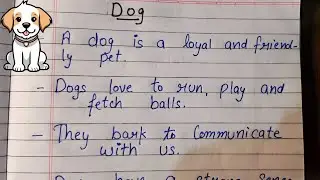 Dog
A dog is a loyal and friend-
ly pet.
- Dogs love to run, play and
fetch balls.
- They bark to communicate
with us.